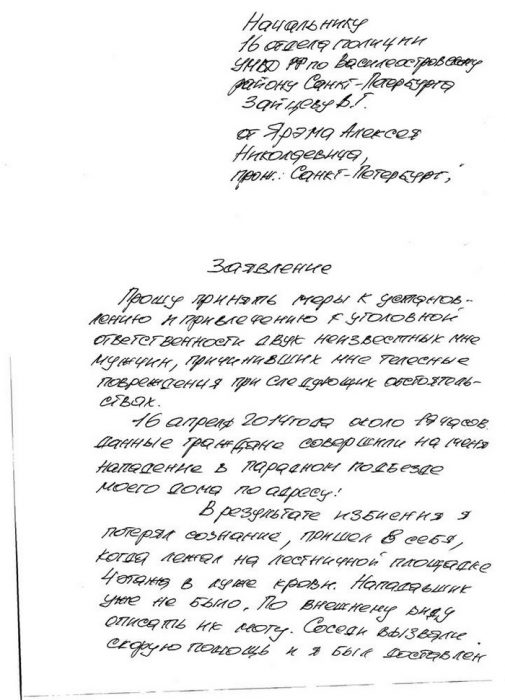 Начальнику
16 отдела полиции
УМВД РФ по Василеостровскому
району Санкт-Петербурга
Зайцеву В.Г.
от Ярэма Алексея
Николаевича,
прож.: Санкт-Петербург,
Заявление
Прошу принять меры к установ-
лению и привлечению к уголовной
ответственности двух неизвестных мне
мужчин, причинивших мне телесные
повреждения при следующих обстоятель-
ствах.
16 апреля 2014 года около 19 часов
данные граждане совершили на меня
нападение в парадном подъезде
моего дома по адресу:
В результате избиения я
потерял сознание, пришел в себя,
когда лежал на лестничной площадке
4 этажа в луже крови. Нападавших
уже не было. По внешнему виду
описать их могу. Соседи вызвали
скорую помощь и я был доставлен